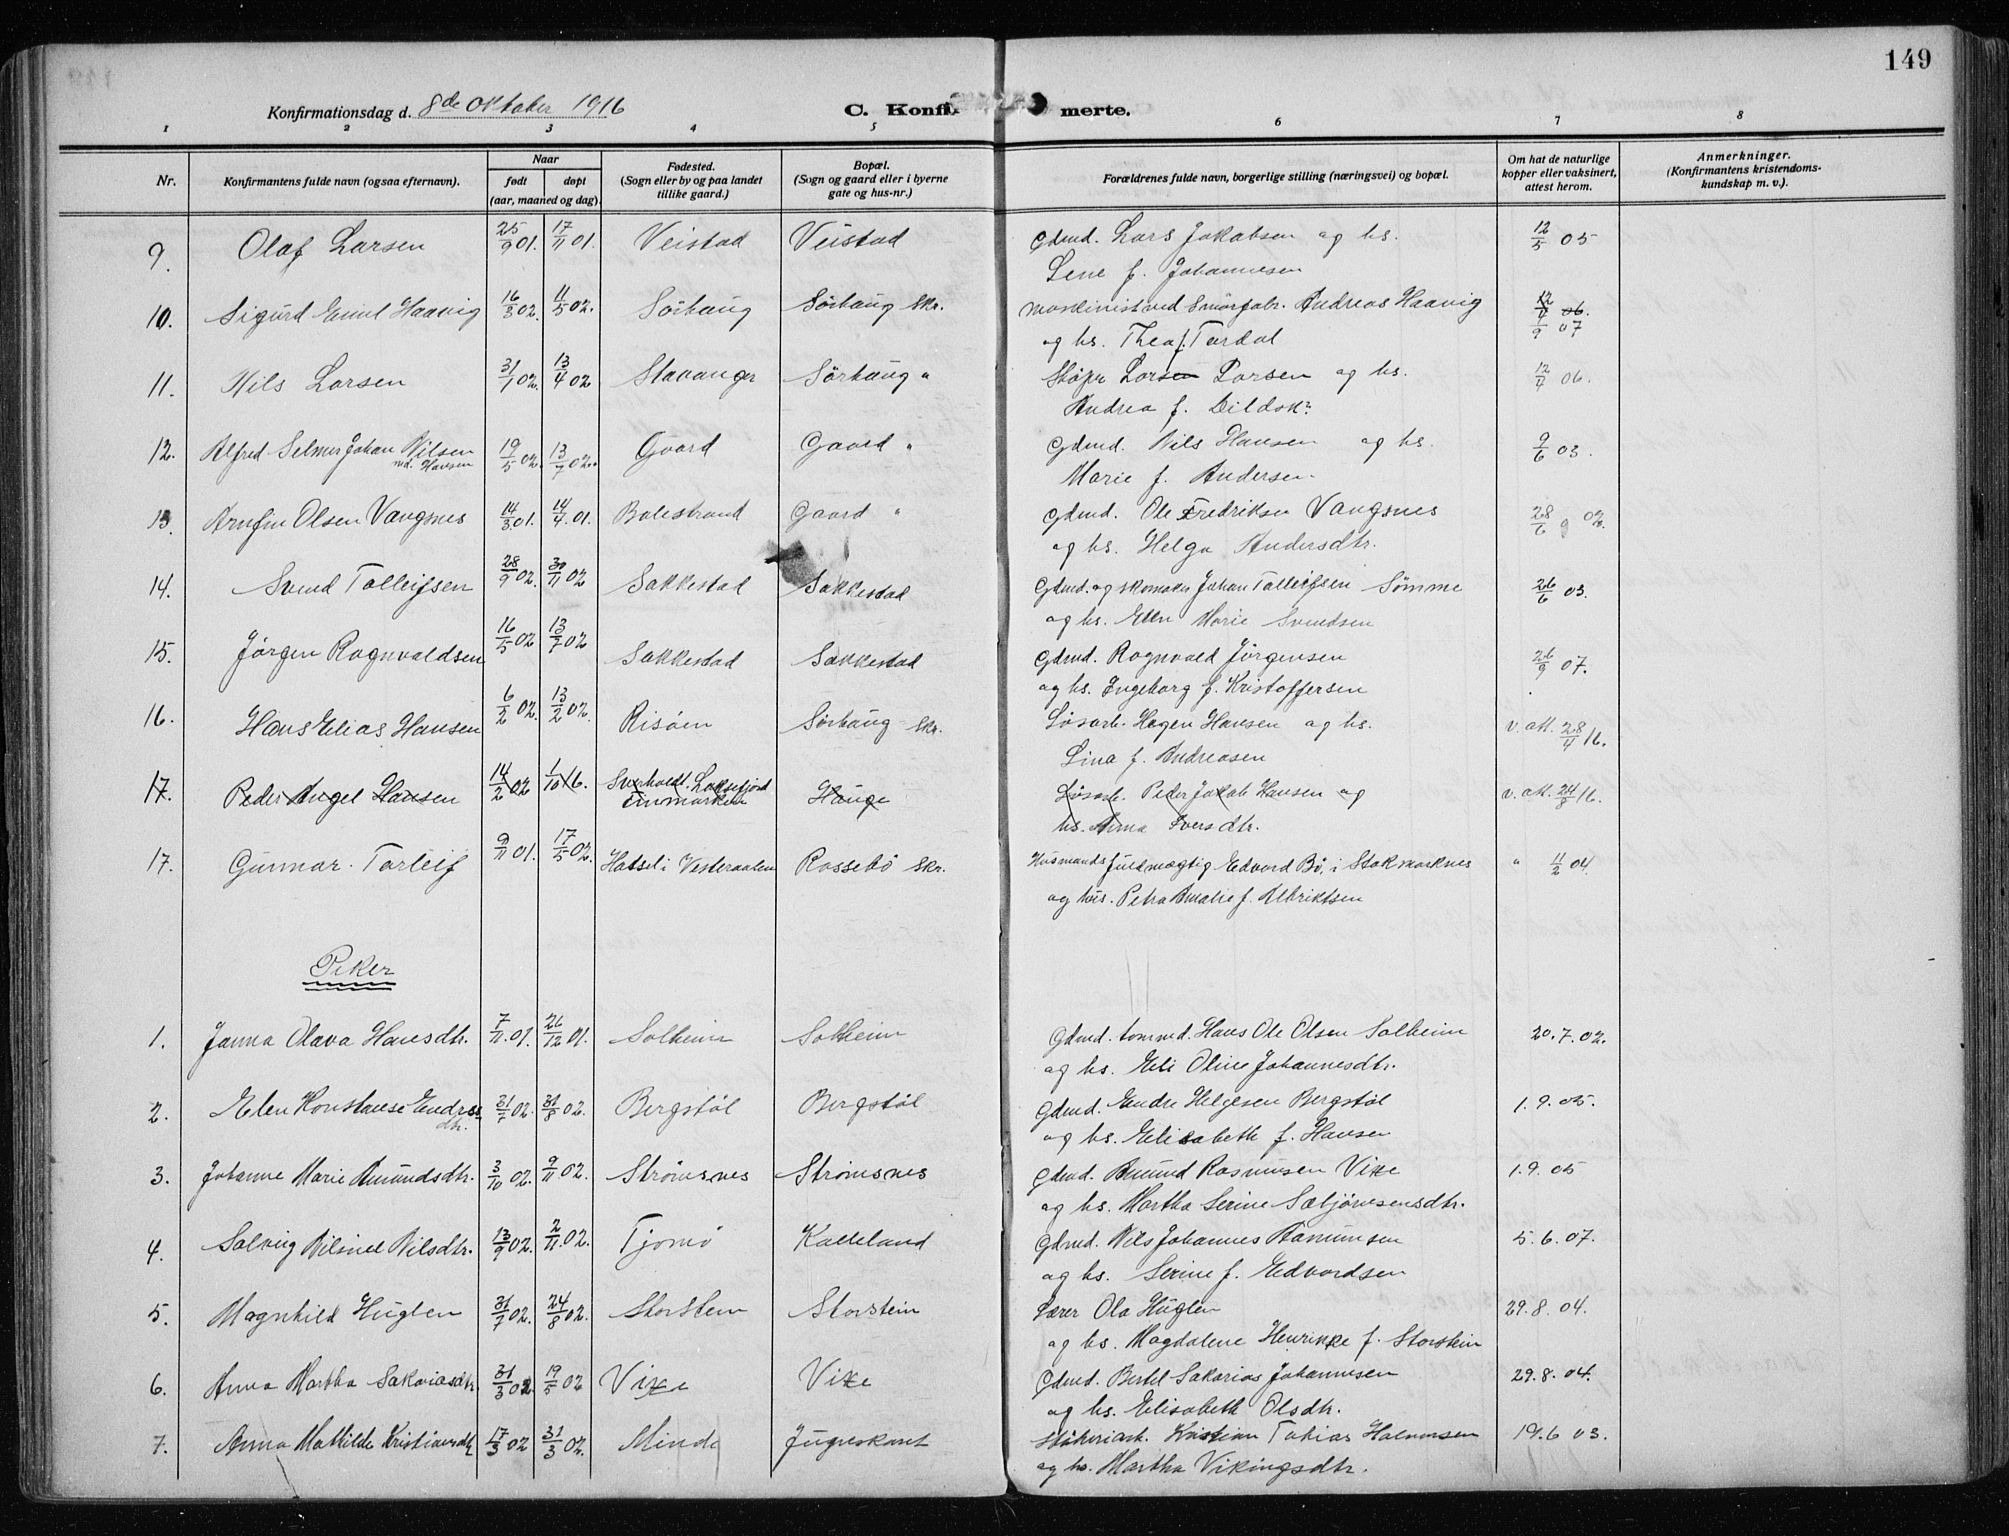 149
Konfirmationsdag d. 8de Oktober 1916
C. Konfir merte.
1 2 3 4 5 6 7 8
Nr. Konfirmantens fulde navn (ogsaa efternavn). Naar født døpt (aar, maaned og dag). Fødested. (Sogn eller by og paa landet tillike gaard.) Bopæl. (Sogn og gaard eller i byerne gate og hus-nr.) Forældrenes fulde navn, borgerlige stilling (næringsvei) og bopæl. Om hat de naturlige kopper eller vaksinert, attest herom. Anmerkninger. (Konfirmantens kristendoms-kundskap m. v.)
9. Olaf Larsen 25/9 01. 17/11 01. Veistad Veistad Gdmd. Lars Jakobsen og hs. 12/5 05
Lene f. Johannesen
10. Sigurd Emil Haavig 16/3 02. 11/5 02. Sørhaug Sørhaug Skr. Maskinist ved Smørfabr. Andreas Haavig 12/4 06.
og hs. Thea f. Tardal 4/9 07
11. Nils Larsen 31/1 02. 13/4 02 Stavanger Sørhaug " Støper Larsen Larsen og hs. 12/4 06.
Andrea f.
12. Alfred Selmer Johan Nilsen 19/5 02. 13/7 02. Gaard Gaard " Gdmd. Nils Hansen og hs. 9/6 03.
nd. Hansen Marie f. Andersen.
13. Arnfin Olsen Vangsnes 14/3 01. 14/4 01. Balestrand Gaard " Gdmd. Ole Fredriksen Vangsnes 28/6 02.
og hs. Helga Andersdtr.
14. Svend Tolleifsen 28/9 02. 30/11 02 Sakkestad Sakkestad Gdmd. og skomaker Johan Tolleifsen Sømme 26/6 03.
og hs. Elen Marie Svendsen
15. Jørgen Ragnvaldsen 16/5 02 13/7 02 Sakkestad Sakkestad Gdmd. Ragnvald Jørgensen 26/9 07.
og hs. Ingeborg f. Kristoffersen
16. Hans Elias Hansen 6/2 02. 13/2 02. Risøen Sørhaug Skr. Løsarb. Hagen Hansen og hs. v. att. 28/4 16.
Lina f. Andreasen
17. Peder Angel Hansen 14/2 02 1/10 16. Sverholdt. Laksefjord Hauge Løsarb. Peder Jakob Hansen og v. att. 24/8 16.
Finmarken hs. Anna Iversdtr.
17. Gunnar Torleif 9/11 01. 17/5 02. Hadsel i Vesteraalen Rossebø Skr. Husmands fuldmægtig Edvard Bø, i Stokmarknes " 11/2 04.
og hus. Petra Amalie f. Albriktsen
Piker
1. Janna Olava Hansdtr. 7/11 01. 26/12 01. Solheim Solheim Gdmd. tømmd. Hans Ole Olsen Solheim 20.7.02.
og hs. Eli Oline Johannesdtr.
2. Elen Konstanse Endres 31/7 02. 31/8 02. Bergstøl Bergstøl Gdmd. Endre Helgesen Bergstøl 1.9.05.
dtr. og hs. Elisabeth f. Hansen
3. Johanne Marie Amundsdtr. 3/10 02. 9/11 02. Strømsnes Strømsnes Gdmd. Amund Rasmusen Vike 1.9.05
og hs. Martha Serine
4. Solveig Nilsdtr. 13/9 02. 2/11 02. Tjomø Kalleland Gdmd. Nils Johannes 5.6.07.
og hs. Serine f. Edvardsen
5. Magnhild Huglen 31/7 02. 24/8 02. Storstein Storstein Lærer Ola Huglen 29.8.04.
og hs. Magdalene Henrikke f. Storstein
6. Anna Martha Sakariasdtr. 31/3 02 19/5 02 Vike Vike Gdmd. Bertel Sakarias Johannesen 29.8.04.
og hs. Elisabeth Olsdtr.
7. Anna Mathilde Kristiansdtr 17/3 02 31/3 02. Minde Kristian Tobias 19.6 03.
og hs. Martha Vikingsdtr.